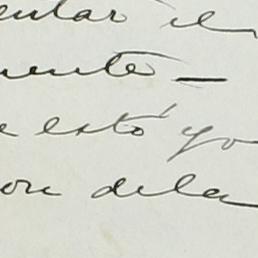 entar el
mente —
e esto yo
on dela